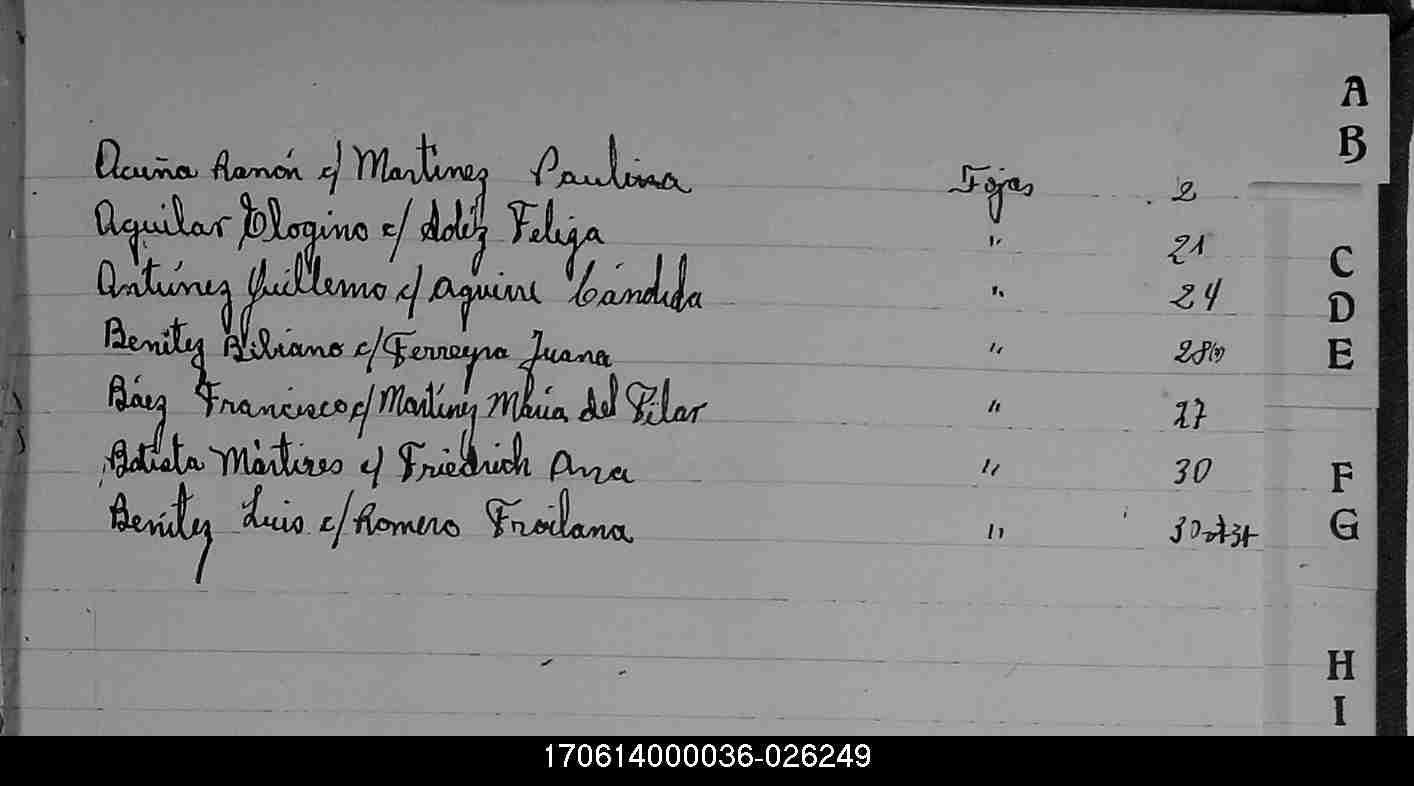 Acuña Ramón c/ Martínez Paulina Fojas 2
Aguilar Elogino c/ Feliza " 21
Antúnez Guillermo c/ Aguirre Cándida " 24
Benítez Bibiano c/ Ferreyra Juana " 28(v)
Báez Francisco c/ Martínez María del Pilar " 27
Batista Mártires c/ Friedrich Ana " 30
Benítez Luis c/ Romero Froilana " 30
A
B
C
D
E
F
G
H
I
170614000036-026249